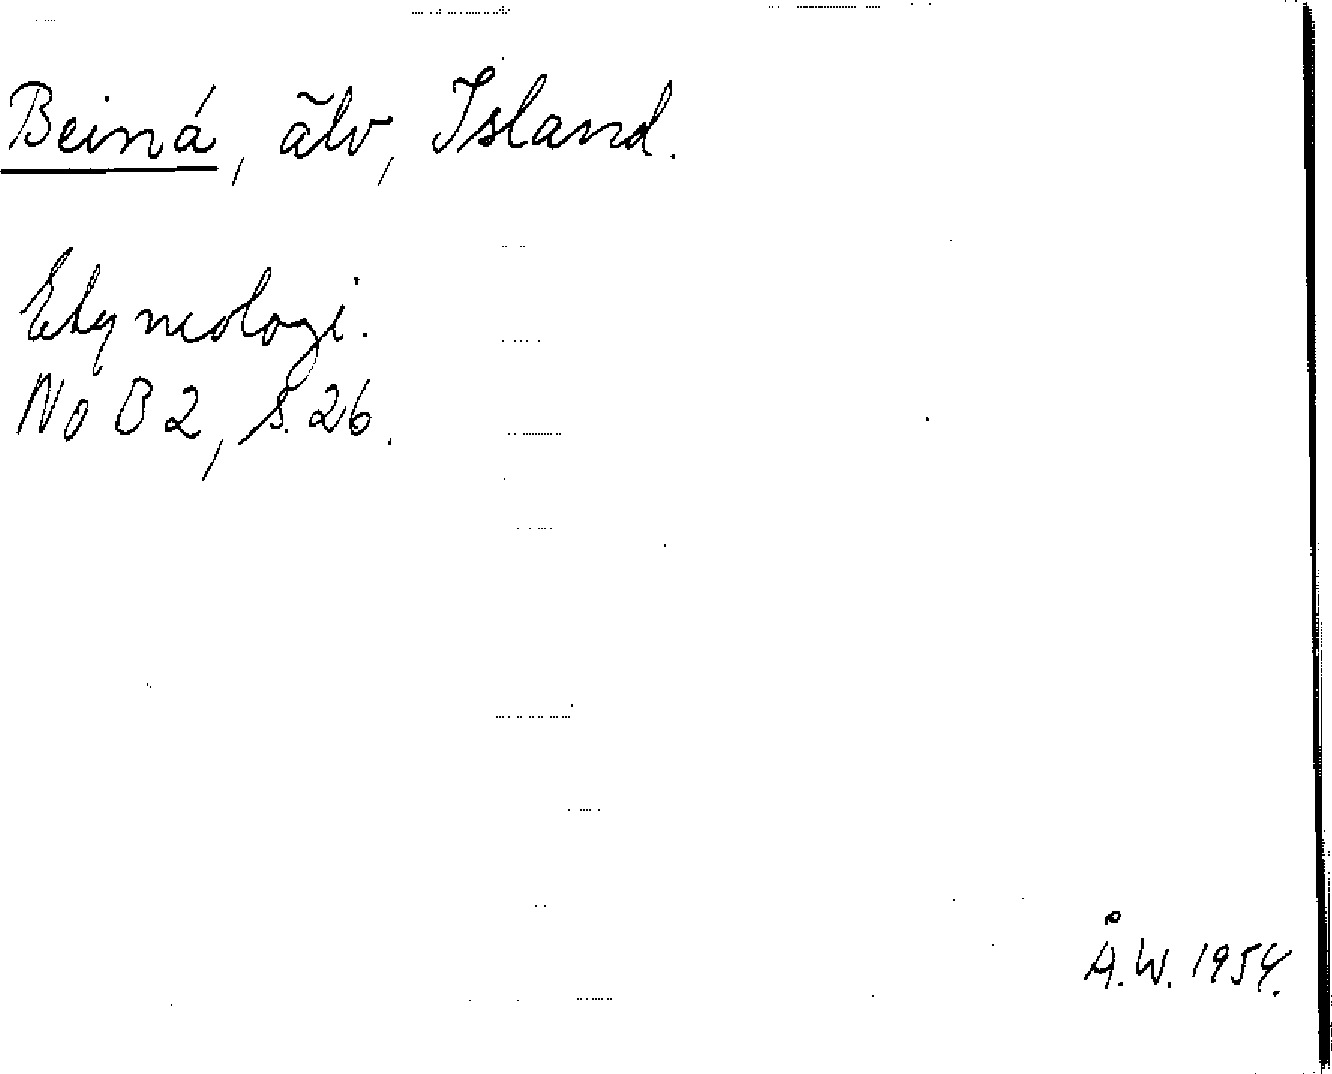 Beiná, älv, Island.
Etymologi.
NoB 2, s. 26.
Å.W. 1954.